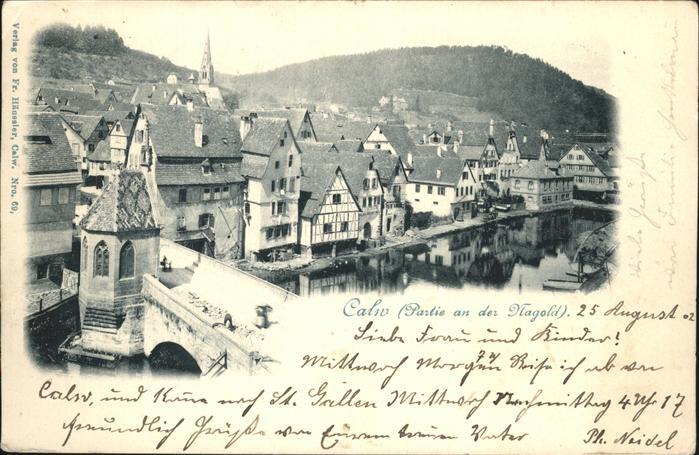 Verlag von Fr. Häussler, Calw. Nro. 69,
Calw (Partie an der Nagold). 25 August 02
Liebe Frau und Kinder!
Mittwoch Morgen Reise ich ab von
Calw, und Kome nach St. Gallen Mittwoch Nachmittag 4 Uhr 17
freundlich Grüße von Eurem treuen Vater
Ph. Neidel